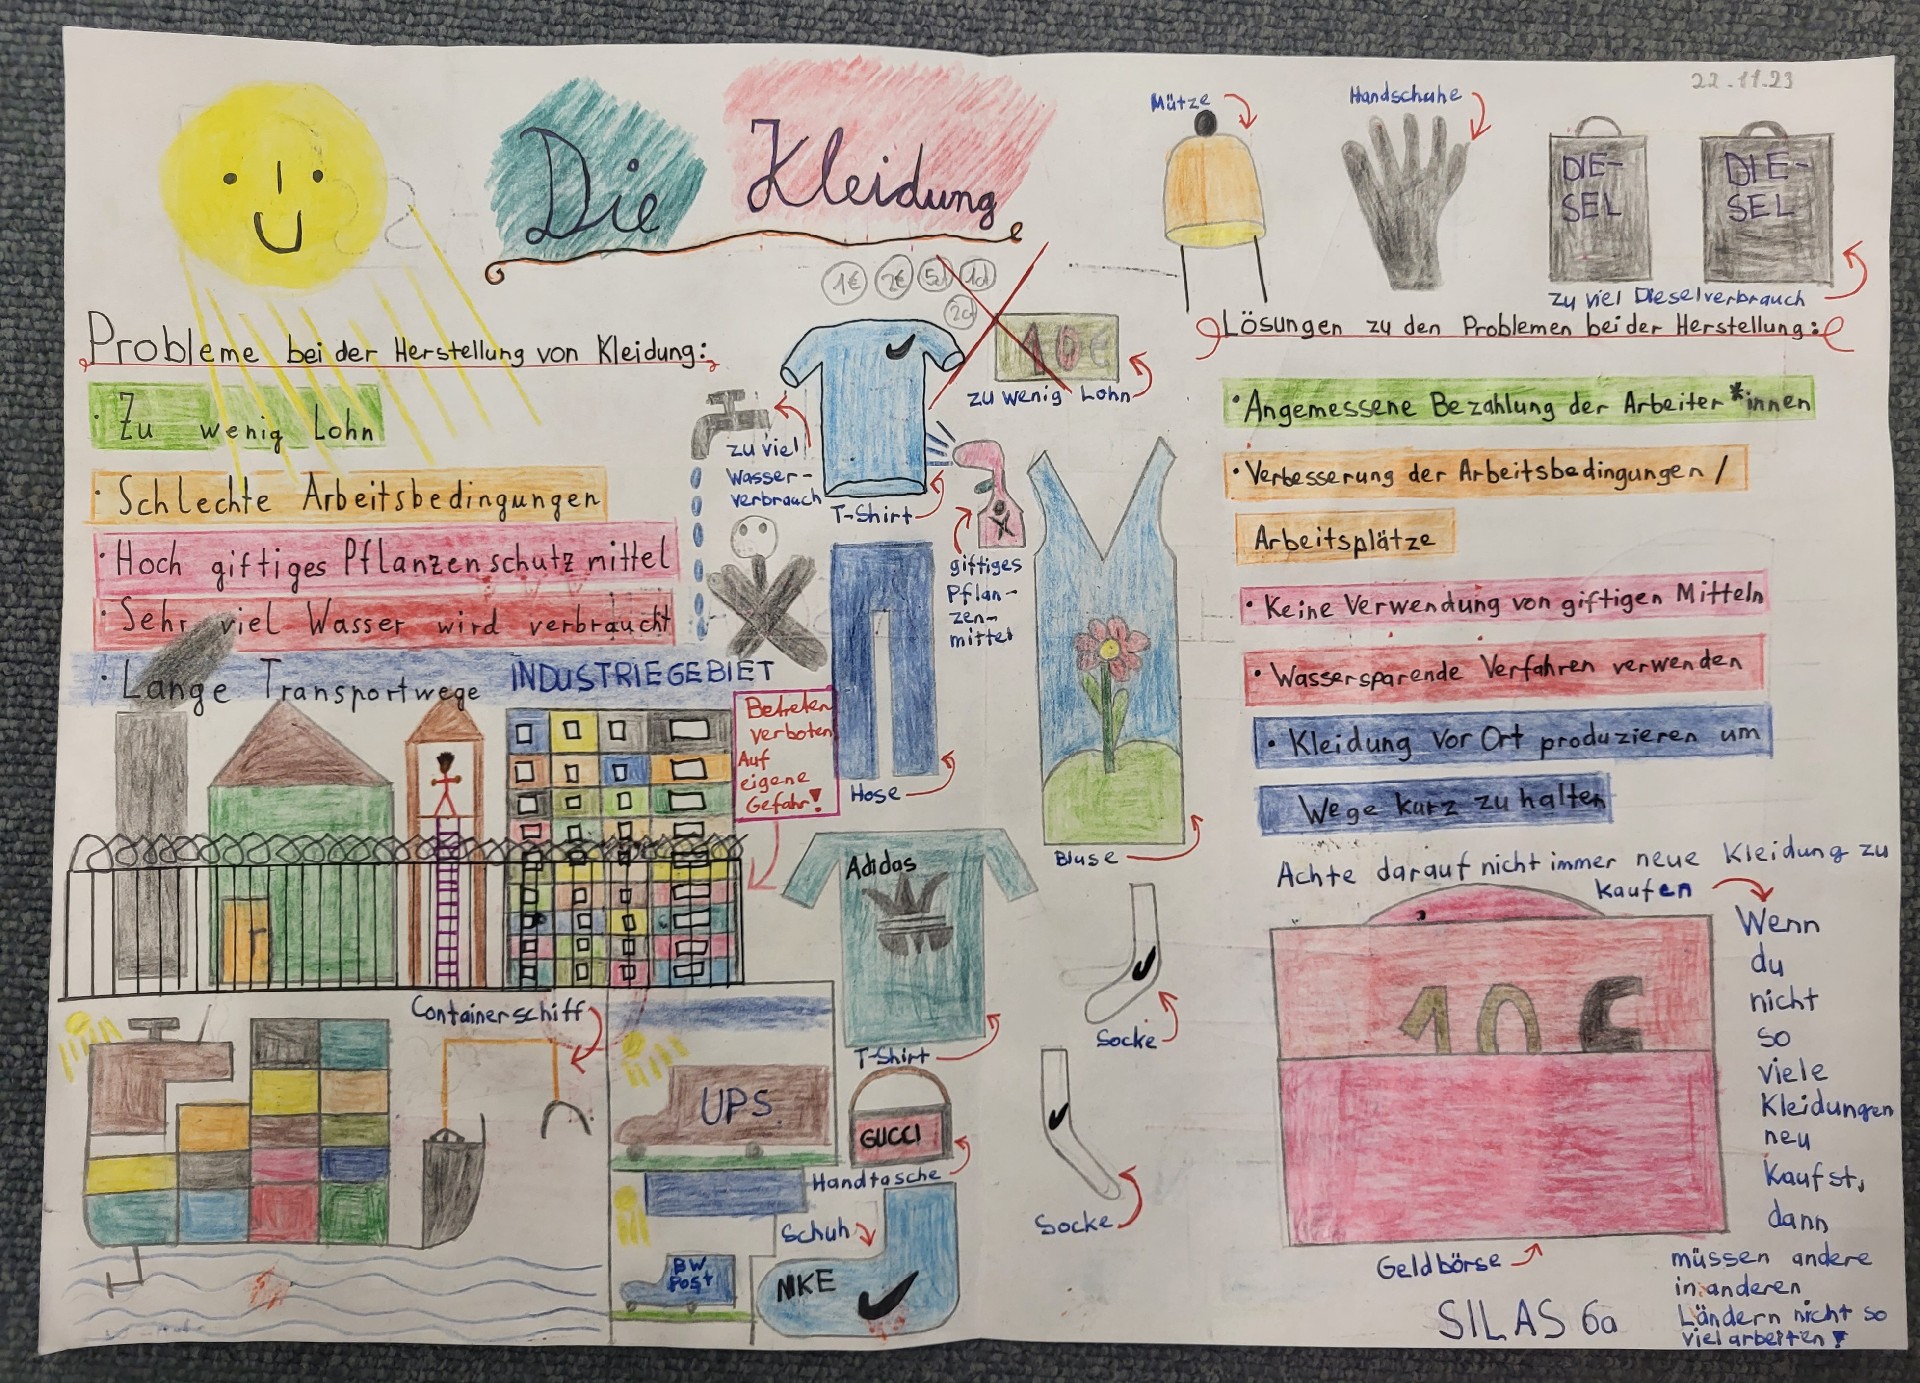 22.11.23
Die Kleidung
Mütze
Handschuhe
DIE-
SEL
DIE-
SEL
zu viel Dieselverbrauch
1€ 2€ 5ct 1ct
2ct
10€
zu wenig Lohn
Probleme bei der Herstellung von Kleidung:
· Zu wenig Lohn
· Schlechte Arbeitsbedingungen
· Hoch giftiges Pflanzenschutzmittel
· Sehr viel Wasser wird verbraucht
· Lange Transportwege
INDUSTRIEGEBIET
Betreten
verboten
Auf
eigene
Gefahr!
zu viel
Wasser-
verbrauch
T-Shirt
giftiges
Pflan-
zen-
mittel
Hose
Bluse
Adidas
T-Shirt
Socke
Socke
GUCCI
Handtasche
Schuh
NIKE
Containerschiff
UPS
BW
Post
Lösungen zu den Problemen bei der Herstellung:
· Angemessene Bezahlung der Arbeiter*innen
· Verbesserung der Arbeitsbedingungen /
Arbeitsplätze
· Keine Verwendung von giftigen Mitteln
· Wassersparende Verfahren verwenden
· Kleidung Vor Ort produzieren um
Wege kurz zu halten
Achte darauf nicht immer neue Kleidung zu
kaufen
Wenn
du
nicht
so
viele
Kleidungen
neu
Kaufst,
dann
müssen andere
in anderen
Ländern nicht so
viel arbeiten!
10€
Geldbörse
SILAS 6a